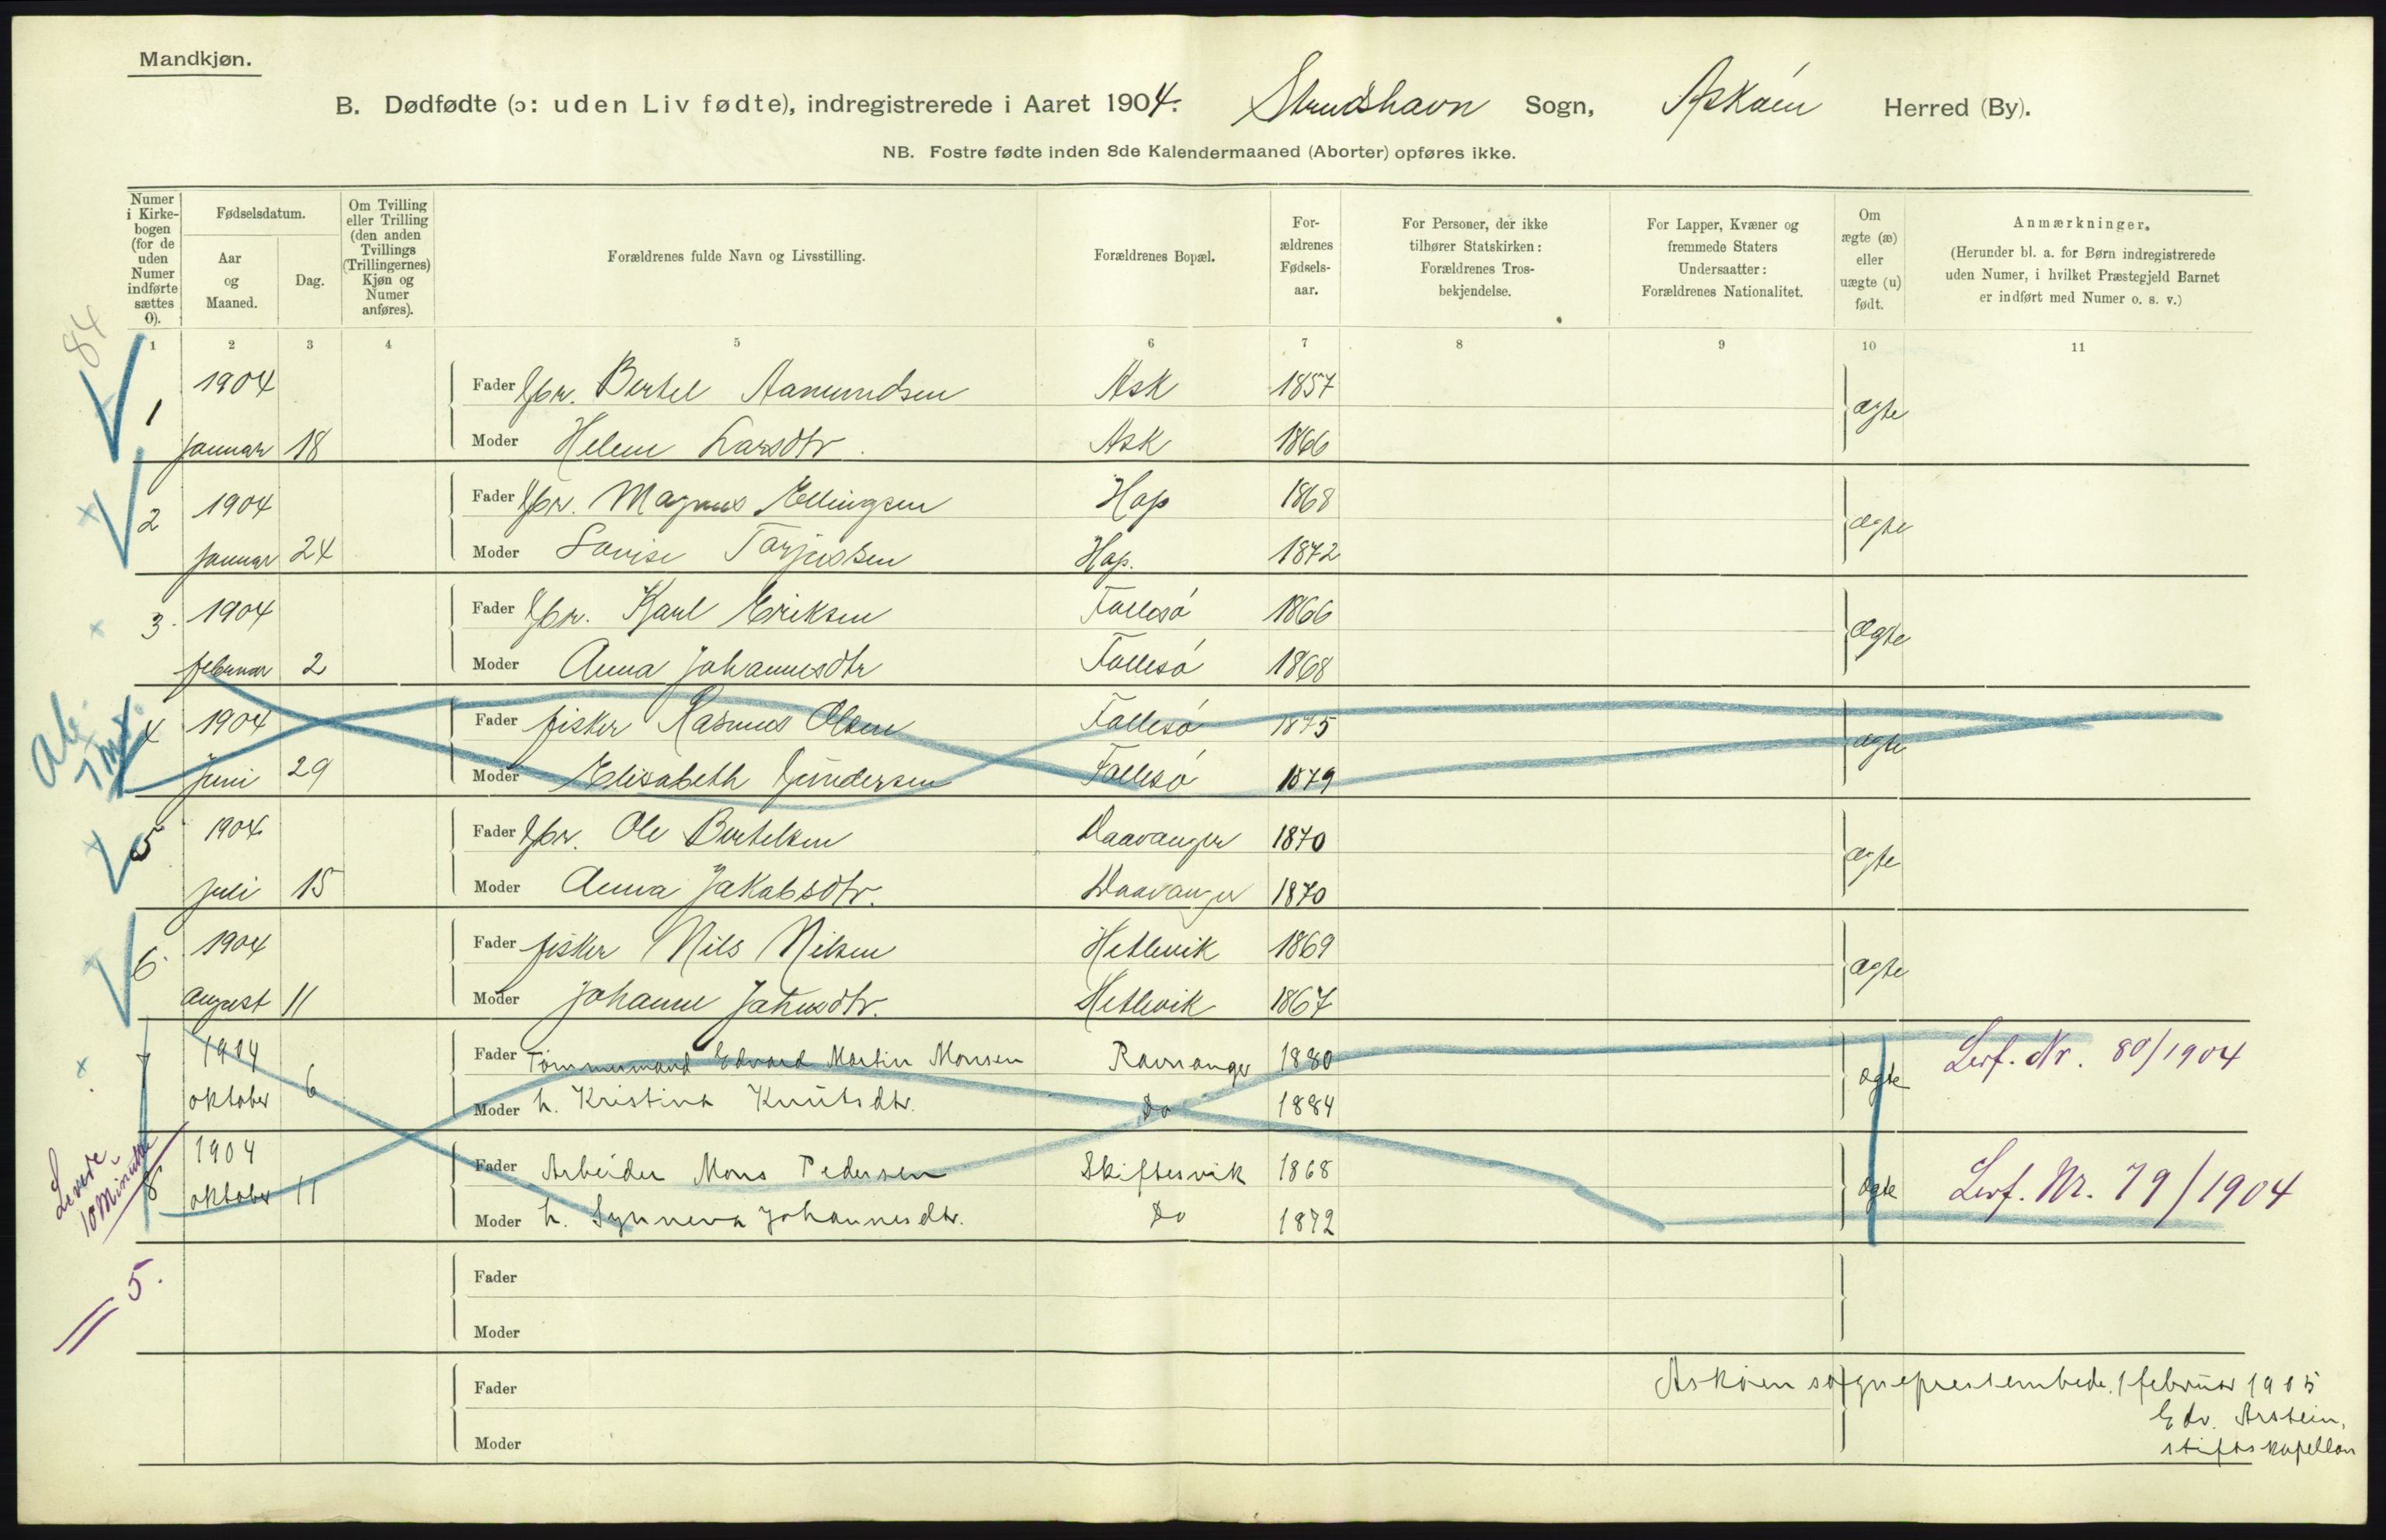 Mandkjøn.
B. Dødfødte (ɔ: uden Liv fødte), indregistrerede i Aaret 1904. Strudshavn Sogn, Askøen Herred (By).
NB. Fostre fødte inden 8de Kalendermaaned (Aborter) opføres ikke.
Numer i Kirkebogen (for de uden Numer indførte sættes 0).
Fødselsdatum.
Aar og Maaned.
Dag.
Om Tvilling eller Trilling (den anden Tvillings (Trillingernes) Kjøn og Numer anføres).
Forældrenes fulde Navn og Livsstilling.
Forældrenes Bopæl.
Forældrenes Fødselsaar.
For Personer, der ikke tilhører Statskirken: Forældrenes Trosbekjendelse.
For Lapper, Kvæner og fremmede Staters Undersaatter: Forældrenes Nationalitet.
Om ægte (æ) eller uægte (u) født.
Anmærkninger.
(Herunder bl. a. for Børn indregistrerede uden Numer, i hvilket Præstegjeld Barnet er indført med Numer o. s. v.)
1 2 3 4 5 6 7 8 9 10 11
84
1 1904 Fader Gbr. Bertel Aamundsen Ask 1857 ægte
Januar 18 Moder Helene Larsdtr. Ask 1866
2 1904 Fader Gbr. Magnus Ellingsen Hop 1868 ægte
Januar 24 Moder Lovise Torjussen Hop. 1872
3. 1904 Fader Gbr. Karl Eriksen Follesø 1866 ægte
februar 2 Moder Anna Johannesdtr Follesø 1868
Ab.
4 1904 Fader fisker Rasmus Olsen Follesø 1875 ægte
Juni 29 Moder Elisabeth Gundersen Follesø 1879
5 1904 Fader Gbr. Ole Bertelsen Haavanger 1870 ægte
Juli 15 Moder Anna Jakobsdtr. Haavanger 1870
6. 1904 Fader fisker Nils Nilsen Hetlevik 1869 ægte
August 11 Moder Johanne Jetmdtr. Hetlevik 1867
7 1904 Fader Tømmermand Edvard Martin Monsen Ravnanger 1880 ægte Levf. Nr. 80/1904
oktober 6 Moder h. Kristina Knutsdtr. Do 1884
Levede 10 Minutter
8 1904 Fader Arbeider Mons Pedersen Skiftesvik 1868 ægte Levf. Nr. 79/1904
oktober 11 Moder h. Synneva Johannesdtr. Do 1872
5.
Fader
Moder
Fader
Moder
Askøen sogneprestembede 1 februar 1905
Edv. Arstein,
stiftskapellan